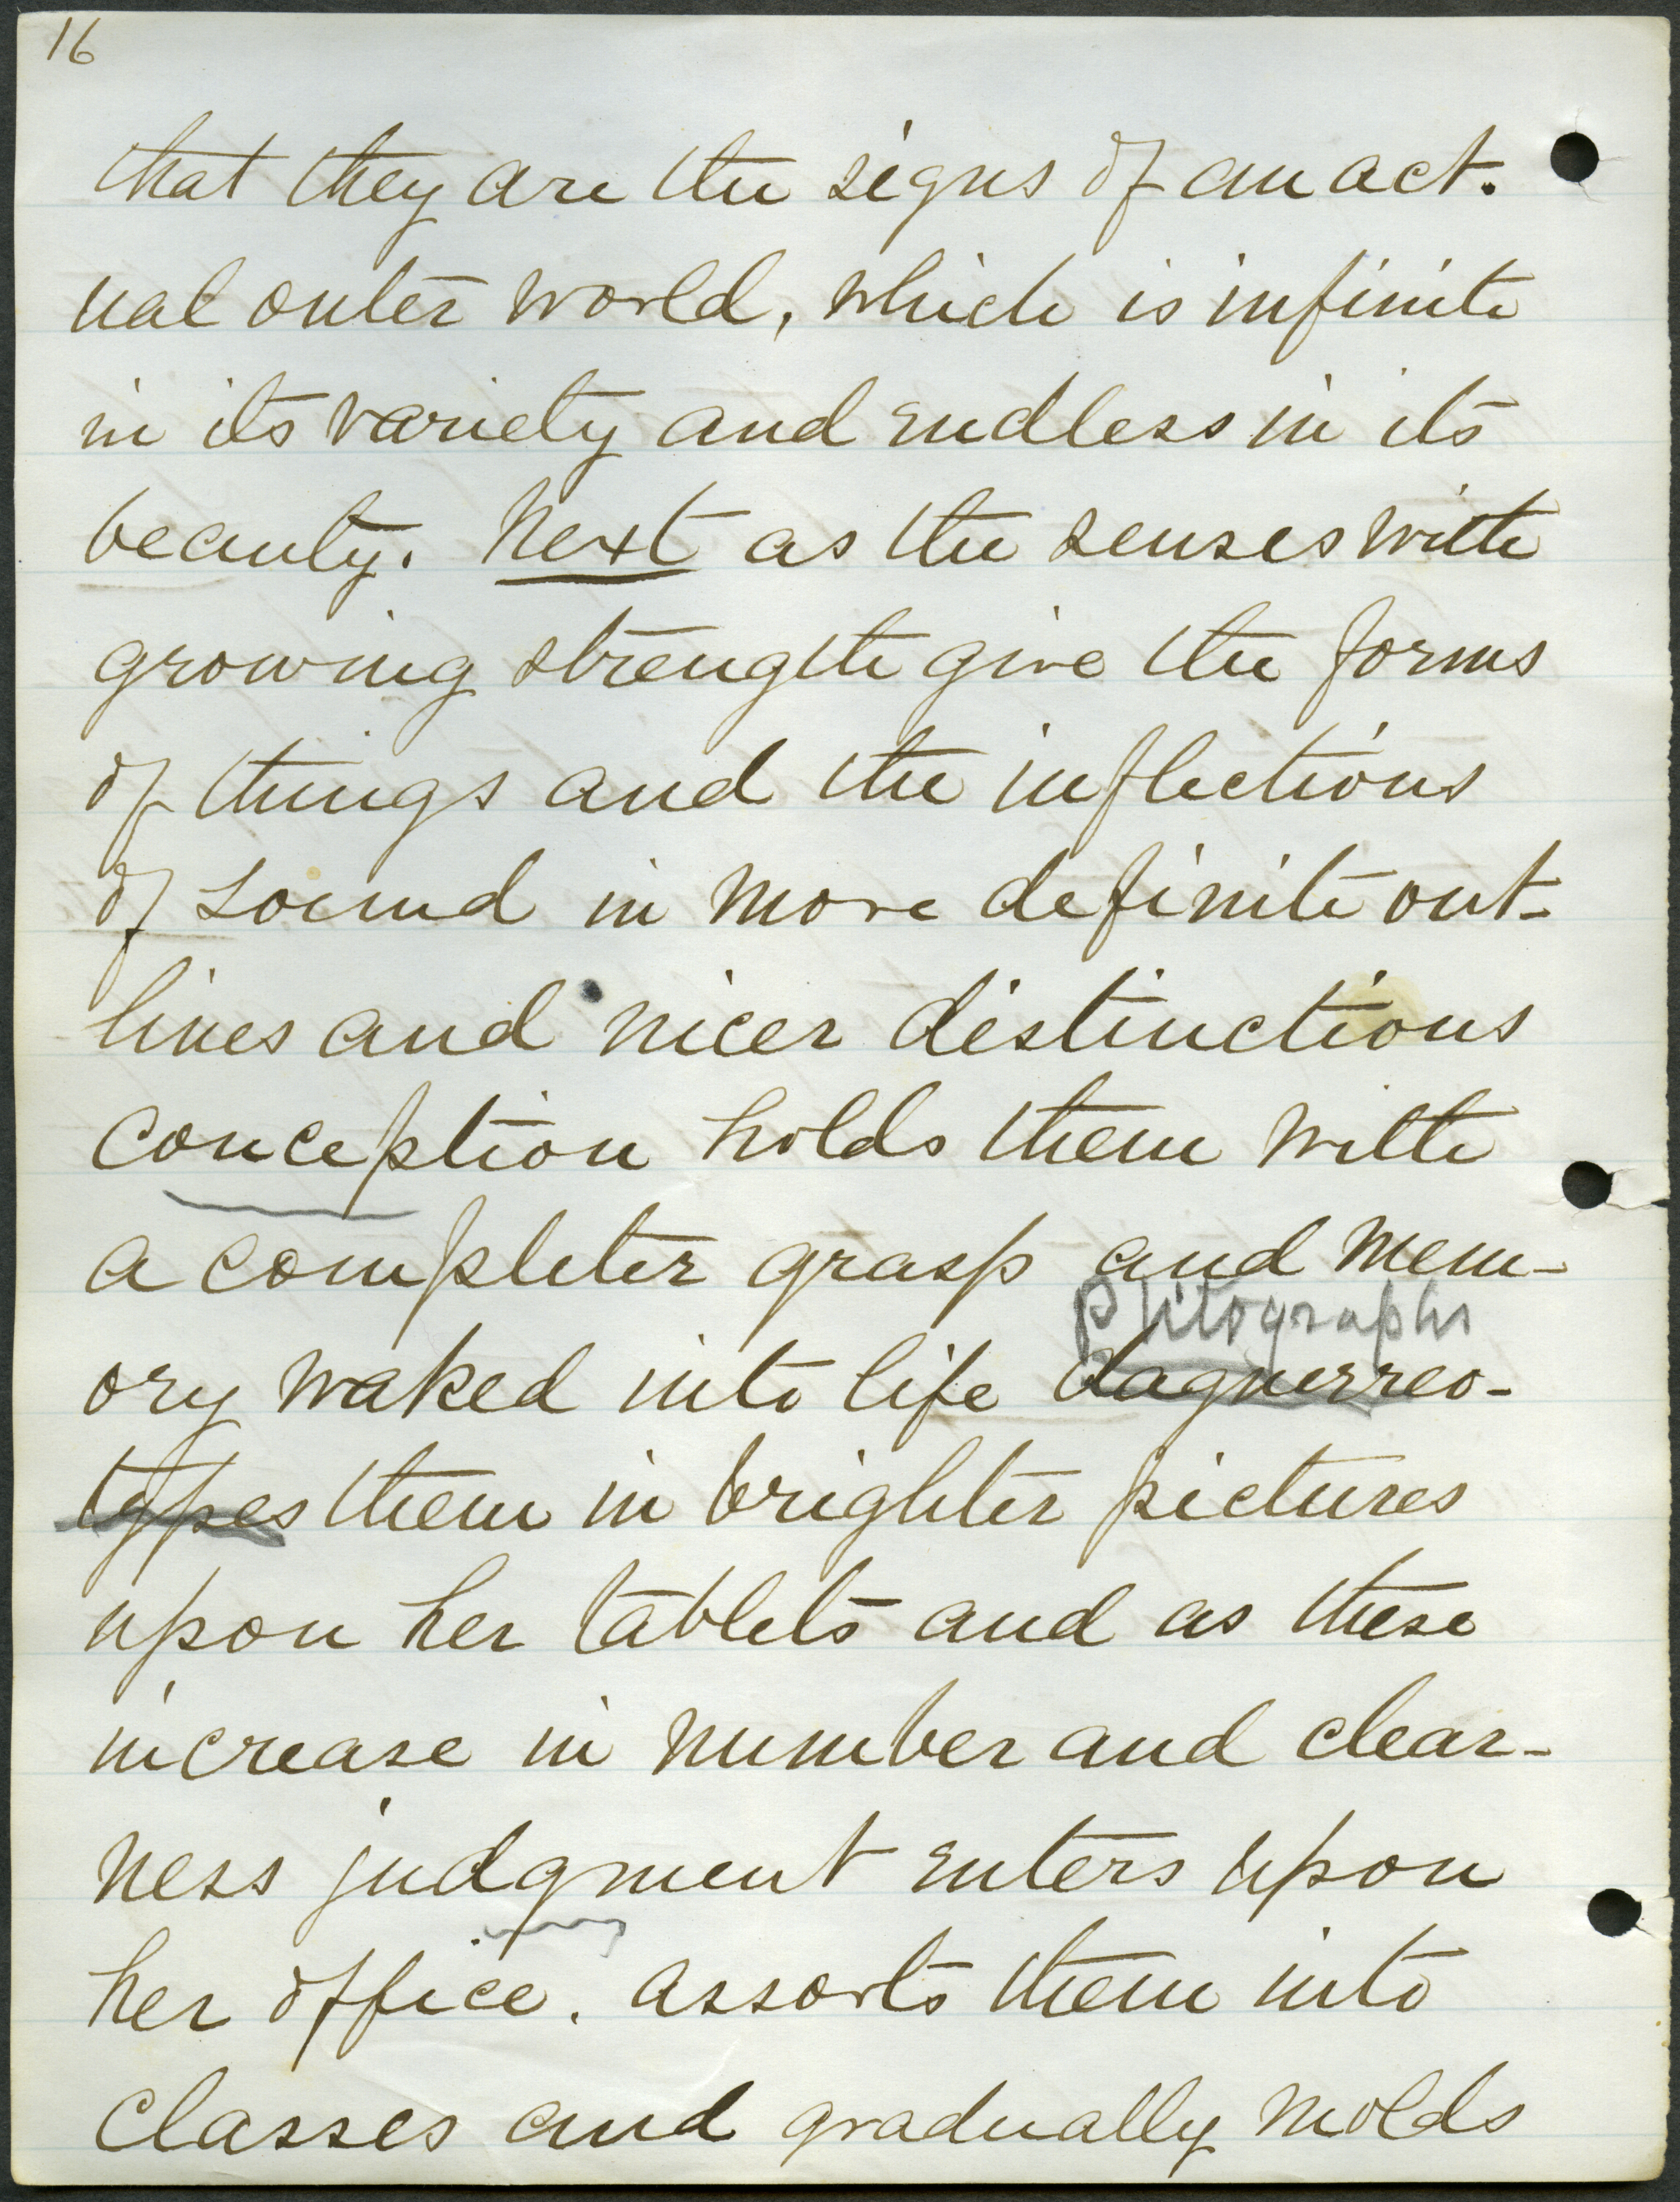 16
that they are the signs of an act.
ual outer world, which is infinite
in its variety and endless in its
beauty. Next as the senses with
growing strength give the forms
of things and the inflections
of sound in more definite out-
lines and nicer distinctions
conception holds them with
a completer grasp and mem-
photographs
ory waked into life daguerreo-
types them in brighter pictures
upon her tablets and as these
increase in number and clear-
ness judgment enters upon
her office. assorts them into
classes and gradually molds